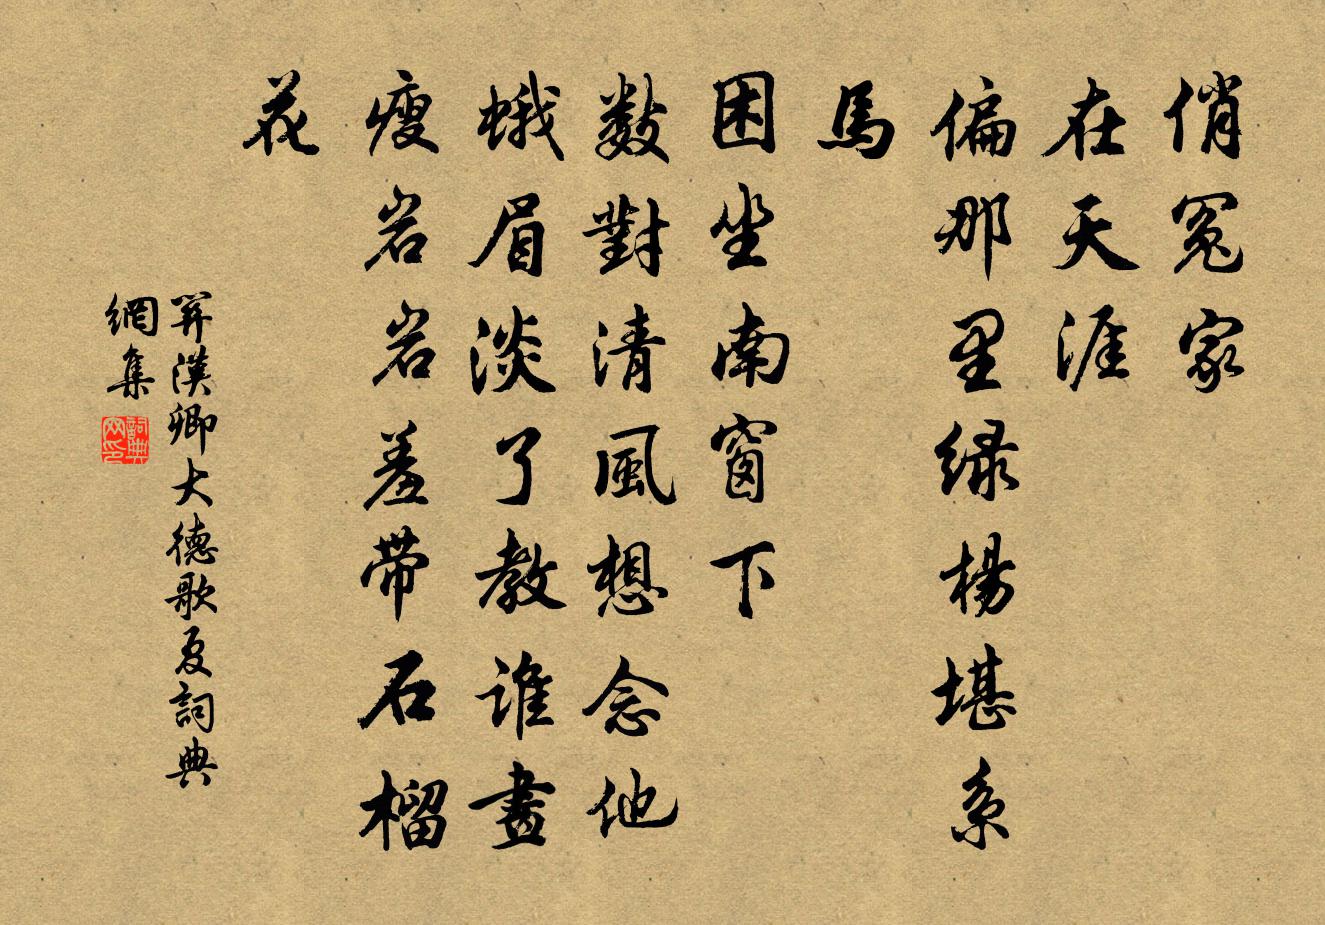 俏冤家
在天涯
偏那里绿楊堪系
馬
困坐南窗下
數對清風想念他
蛾眉淡了教誰畫
瘦岩岩羞帶石榴
花
關漢卿大德歌夏詞典
網集
詞典網印